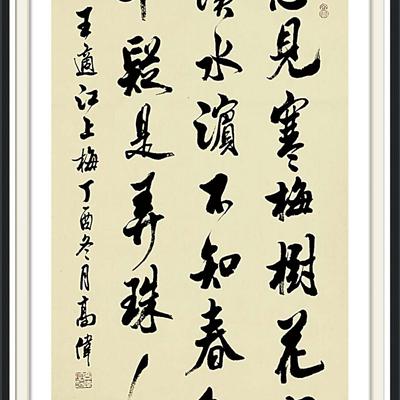 見寒梅樹花
水濱不知春
疑是弄珠
王適江上梅丁酉冬月高偉